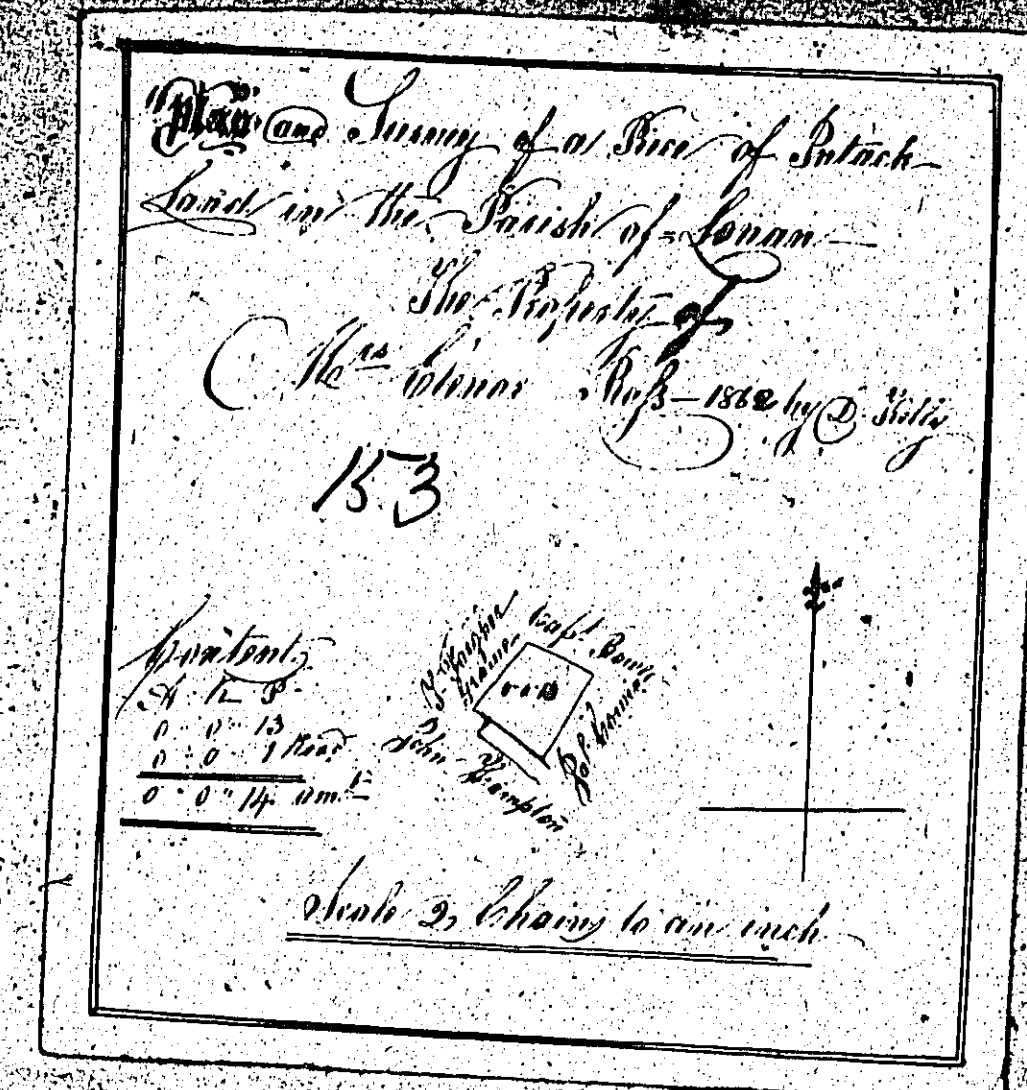 Plan and Survey of a Piece of Intack
Land in the Parish of Lonan
The Property of
Mrs Elenor Ross — 1862 by D Kelly
153
Content
A R P
0 0 13
0 0 1 Road
0 0 14 amt
Capt. Rowe
0 0 13
John Kempton
Scale 2 Chains to an inch